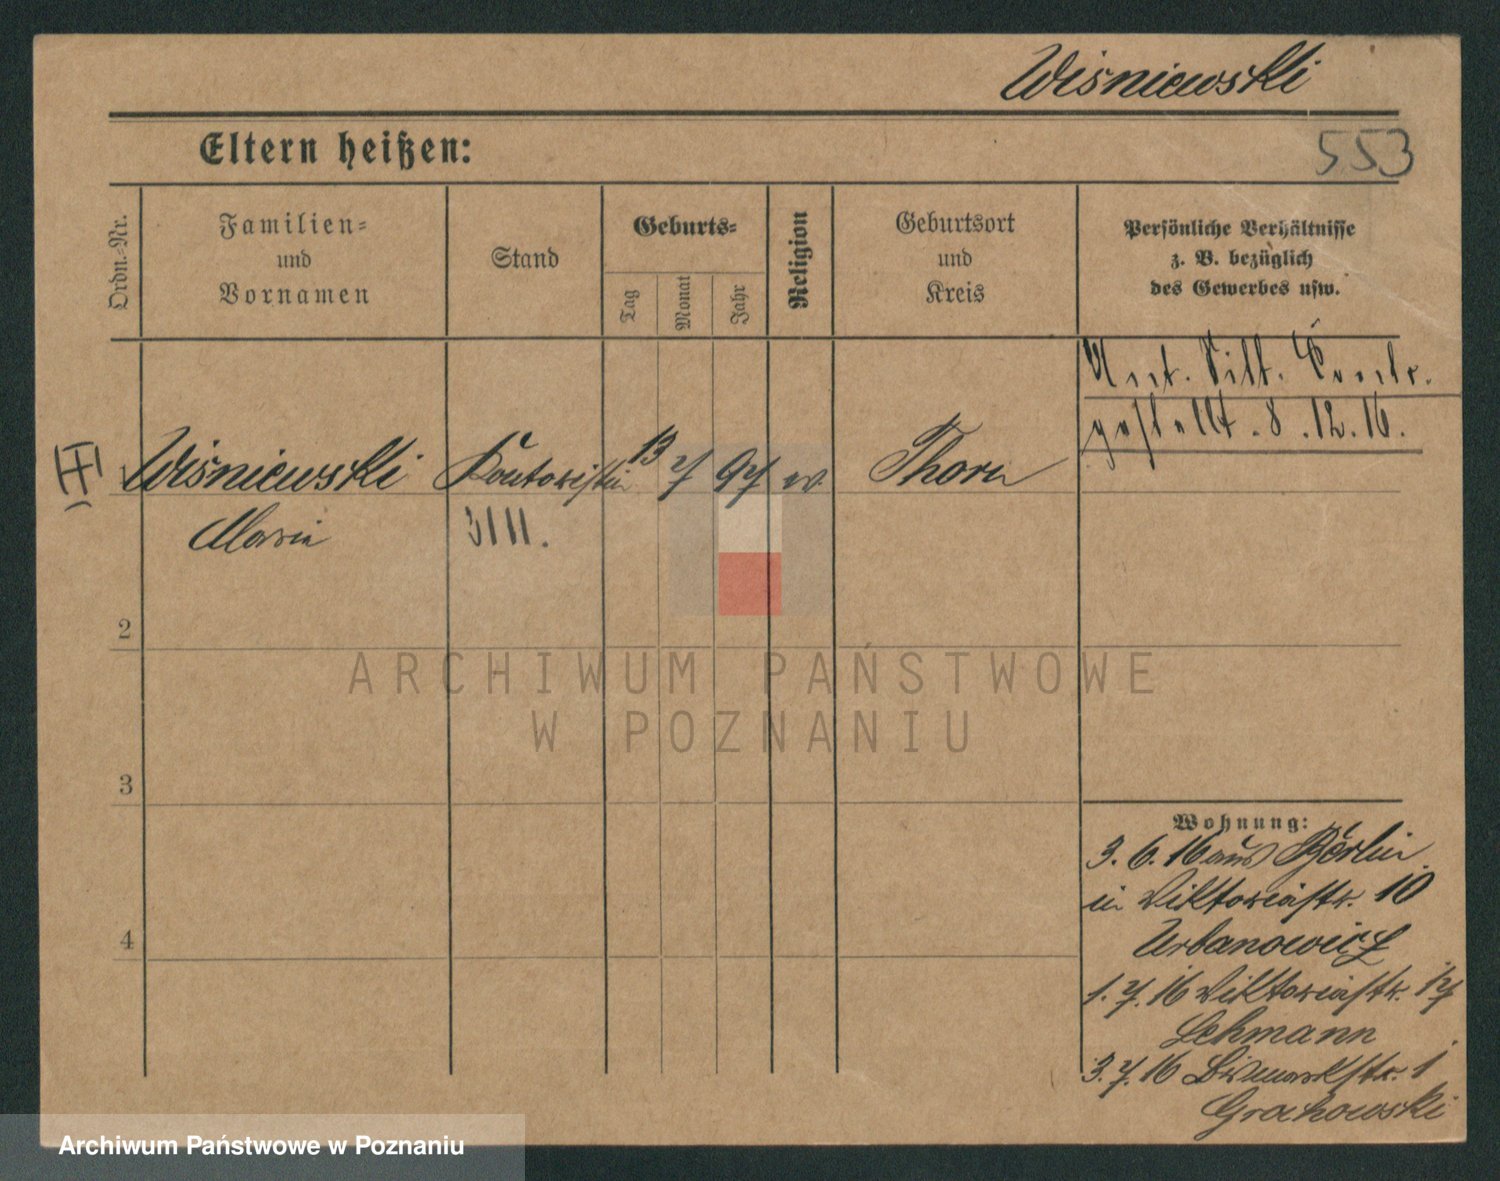 Wiśniewski
553
Eltern heißen:
Ordn.-Nr.
Familien-
und
Vornamen
Stand
Geburts-
Tag
Monat
Jahr
Religion
Geburtsort
und
Kreis
Persönliche Verhältnisse
z. B. bezüglich
des Gewerbes usw.
gestellt. 8.12.16.
1 Wiśniewski Kontoristin 13 7 97 ev. Thorn
Maria
2
3
4
Wohnung:
3. 6. 16 aus Berlin
in Viktoriastr. 10
Urbanowicz
1. 7. 16 Viktoriastr. 17
Lehmann
3. 7. 16 Bismarkstr. 1
Grochowski
ARCHIWUM PAŃSTWOWE
W POZNANIU
Archiwum Państwowe w Poznaniu